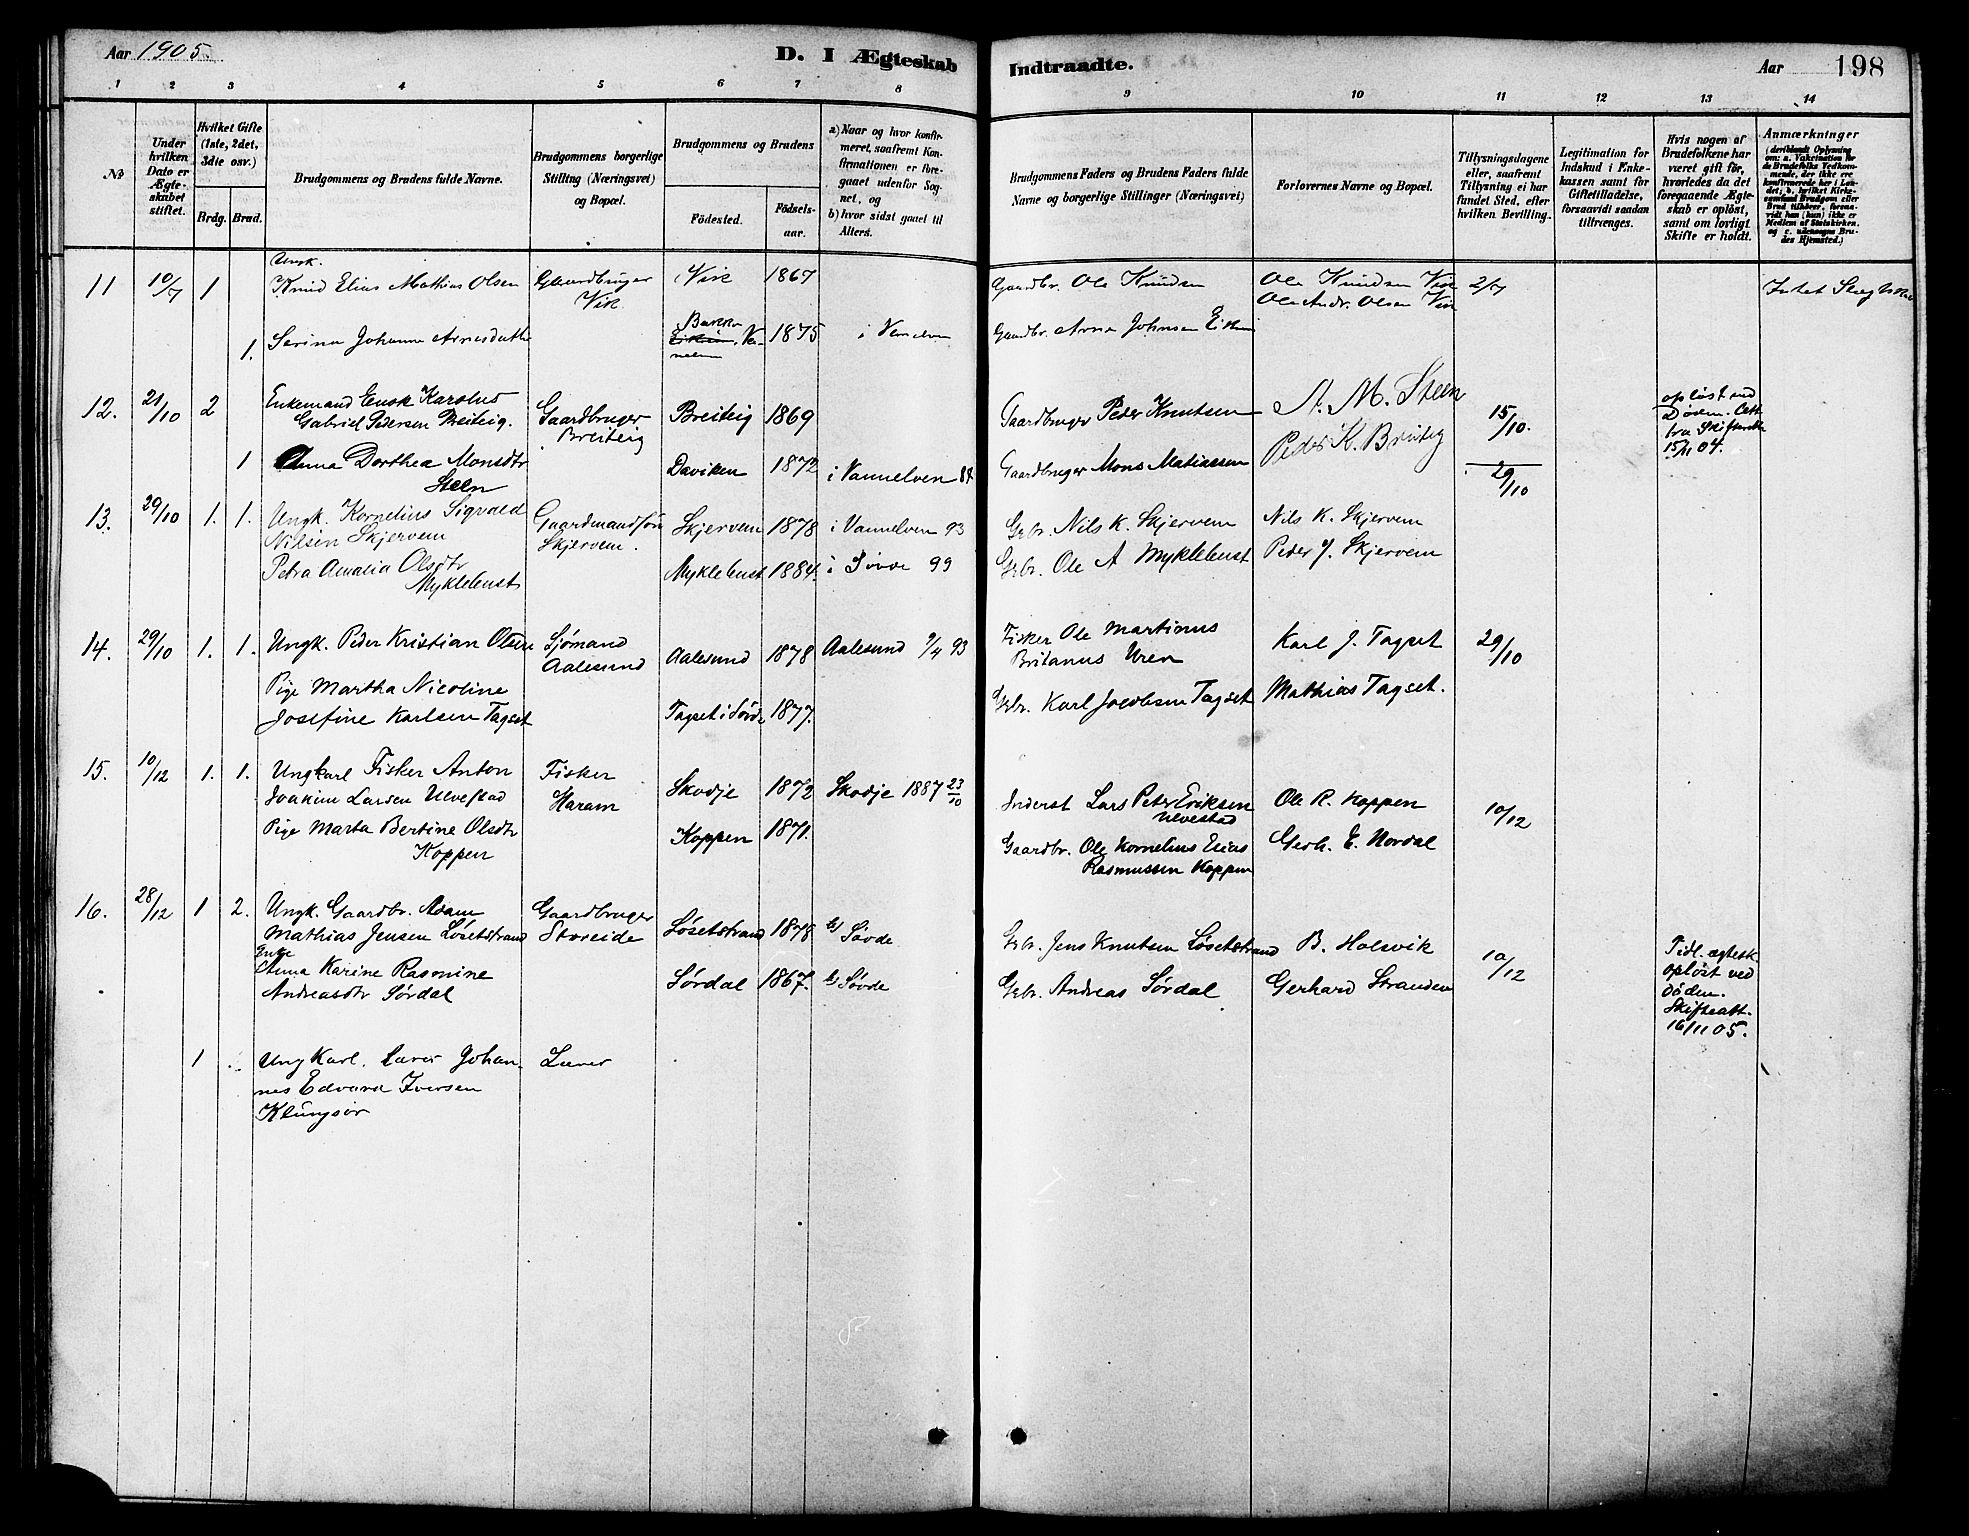 Aar 1905.
D. I Ægteskab
Indtraadte.
Aar
198
1 2 3 4 5 6 7 8 9 10 11 12 13 14
No
Under hvilken Dato er Ægteskabet stiftet.
Hvilket Gifte (1ste, 2det, 3die osv.)
Brdg. Brud.
Brudgommens og Brudens fulde Navne.
Brudgommens borgerlige Stilling (Næringsvei) og Bopæl.
Brudgommens og Brudens
Födested.
Födselsaar.
a) Naar og hvor konfirmeret, saafremt Konfirmationen er foregaaet udenfor Sognet, og
b) hvor sidst gaaet til Alters.
Brudgommens Faders og Brudens Faders fulde Navne og borgerlige Stillinger (Næringsvei)
Forlovernes Navne og Bopæl.
Tillysningsdagene eller, saafremt Tillysning ei har fundet Sted, efter hvilken Bevilling.
Legitimation for Indskud i Enkekassen samt for Giftetilladelse, forsaavidt saadan tiltrænges.
Hvis nogen af Brudefolkene har været gift før, hvorledes da det foregaaende Ægteskab er opløst, samt om lovligt Skifte er holdt.
Anmærkninger
(deriblandt Oplysning om: a. Vakcination for de Brudefolks Vedkommende, der ikke ere konfirmerede her i Landet; b. hvilket Kirkesamfund Brudgom eller Brud tilhörer, forsaavidt han (hun) ikke er Medlem af Statskirken, og c. udensogns Brudes Hjemsted.)
11 10/7 1
Ungk.
Knud Elias Mathias Olsen
Gaardbruger
Vik
Vik 1867
Gaardbr. Ole Knudsen
Ole Knudsen Vik
Ole Andr. Olsen Vik
2/7
Intet Slegtskab
1.
Serina Johanne Arnesdatter
1875
i Vanelven
Gaardbr. Arne Johnsen
12. 21/10 2
Enkemand Enok Karolus
Gabriel Pedersen Breiteig.
Gaardbruger
Breiteig
Breiteig 1869
Gaardbruger Peder Knutsen
A. M. Steen
15/10.
opløst ved
Døden.
15/11 04.
1
Anna Dorthea Monsdtr
Steen
Daviken 1872
i Vannelven 87
Gaardbruger Mons Matiassen
Peder K. Breiteig
29/10
13. 29/10 1. 1.
Ungk. Kornelius Sigvald
Nilsen Skjervem
Gaardmandssøn
Skjervem.
Skjervem 1878
i Vannelven 93
Grbr. Nils K. Skjervem
Nils K. Skjervem
Petra Amalia Olsdtr
Myklebust
Myklebust 1884.
i Søvde 99
Grbr. Ole A Myklebust
Peder J. Skjervem
14. 29/10 1. 1.
Ungk. Peder Kristian Olsen
Sjømand
Aalesund
Aalesund 1878
Aalesund 9/4 93
Fisker Ole Martinus
Britanus Uren
Karl J. Tagset
29/10
Pige Martha Nicoline
Josefine Karlsen Tagset
Tagset i Søvde 1877.
Grbr. Karl Jacobsen Tagset
Mathias Tagset.
15. 10/12 1. 1.
Ungkarl Fisker Anton
Joakim Larsen Ulvestad
Fisker
Haram
Skodje 1872
Skodje 1887 23/10
Inderst Lars Peter Eriksen
Ulvestad
Ole R. Koppen
10/12
Pige Marta Bertine Olsdtr
Koppen
Koppen 1871.
Gaardbr. Ole Kornelius Elias
Rasmussen Koppen
Gerh. E. Nordal
16. 28/12 1 2.
Ungk. Gaardbr. Adam
Mathias Jensen Løsetstrand
Gaardbruger
Storeide
Løsetstrand 1878
b) Søvde
Grbr. Jens Knutsen Løsetstrand
B. Holsvik
10/12
Tidl. ægtesk.
opløst ved
døden.
Skifteatt.
16/11 05.
Enke
Anna Karine Rasmine
Andreasdtr Sørdal
Sørdal 1867.
b) Søvde
Grbr. Andreas Sørdal
Gerhard Stranden
1
Ungkarl. Lærer Johan-
nes Edvard Iversen
Klungsör
Lærer